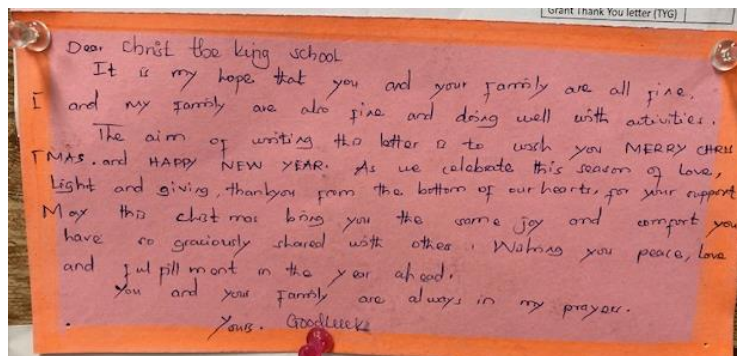 Grant Thank You letter (TYG)
Dear Christ the king school
It is my hope that you and your Family are all fine.
I and my Family are also fine and doing well with activities.
The aim of writing this letter is to wish you MERRY CHRIS
TMAS. and HAPPY NEW YEAR. As we celebrate this season of Love,
Light and giving, thankyou from the bottom of our hearts, for your support
May this christmas bring you the same joy and comfort you
have so graciously shared with others. Wishing you peace, Love
and fulpillment in the year ahead.
You and your Family are always in my prayers.
Yours. Goodluck